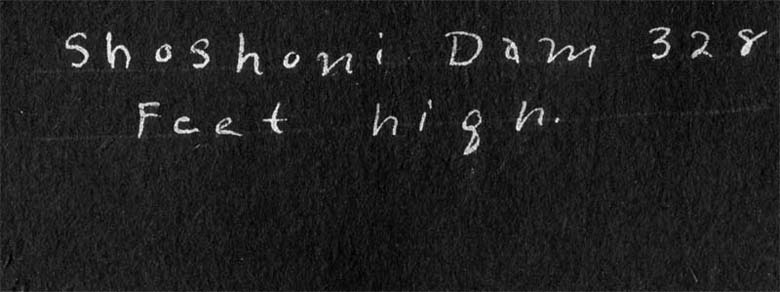 Shoshoni Dam 328
Feet high.